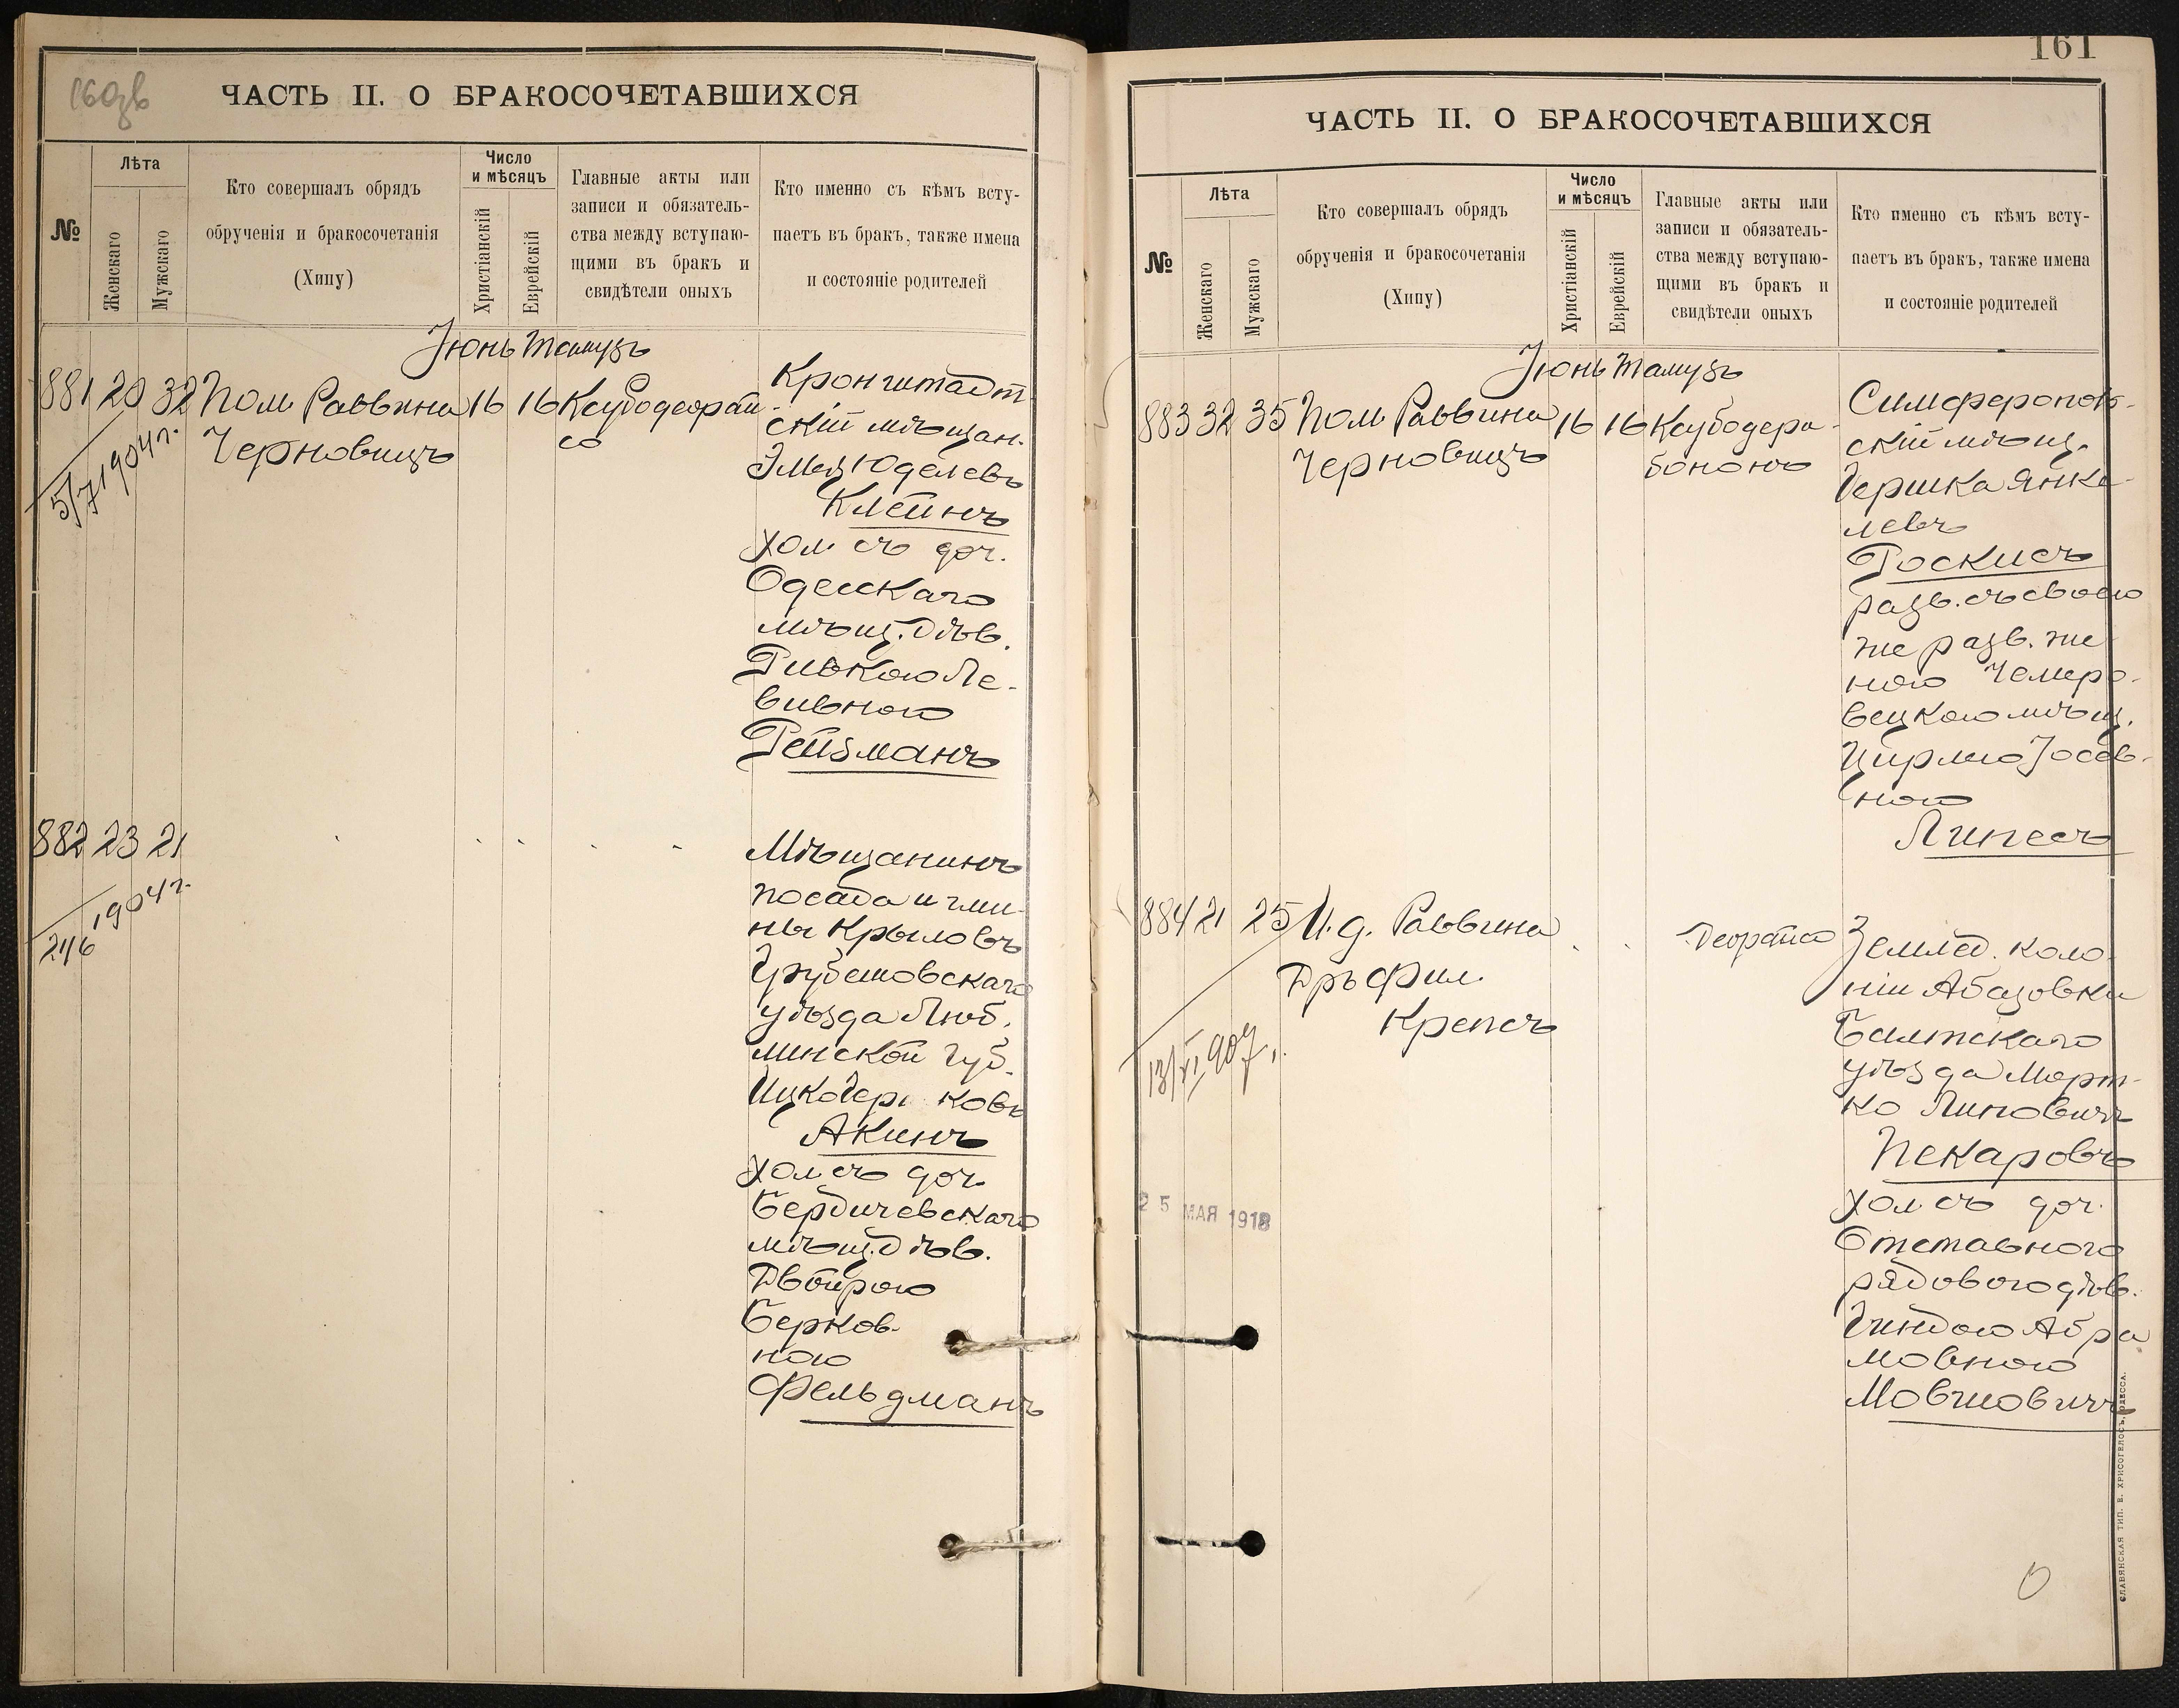 160зв
ЧАСТЬ II. О БРАКОСОЧЕТАВШИХСЯ
№
Лѣта
Женскаго
Мужскаго
Кто совершалъ обрядъ
обрученія и бракосочетанія
(Хипу)
Число
и мѣсяцъ
Христіанскій
Еврейскій
Главные акты или
записи и обязатель-
ства между вступаю-
щими въ бракъ и
свидѣтели оныхъ
Кто именно съ кѣмъ всту-
паетъ въ бракъ, также имена
и состояніе родителей
Іюнь Тамузъ
881 20 32 Пом. Раввина 16 16 Ксубодеорай-
Черновицъ
со
5/7 1904 г.
Кронштадт-
скій мѣщан.
Эмец Юделевъ
Клейнъ
хол. съ доч.
Одесскаго
мѣщ. дѣв.
Ривкою Ле-
вивною
Рейзманъ
882 23 21
1904 г.
24/6
Мѣщанинъ
посада и гми-
ны Крыловъ
Грубешовскаго
уѣзда Люб-
линской губ.
Ицко Гершковъ
Акинъ
хол. съ доч.
Бердичевскаго
мѣщ. дѣв.
Двойрою
Берков-
ною
Фельдманъ
161
ЧАСТЬ II. О БРАКОСОЧЕТАВШИХСЯ
№
Лѣта
Женскаго
Мужскаго
Кто совершалъ обрядъ
обрученія и бракосочетанія
(Хипу)
Число
и мѣсяцъ
Христіанскій
Еврейскій
Главные акты или
записи и обязатель-
ства между вступаю-
щими въ бракъ и
свидѣтели оныхъ
Кто именно съ кѣмъ всту-
паетъ въ бракъ, также имена
и состояніе родителей
Іюнь Тамузъ
883 32 35 Пом. Раввина 16 16 Ксубодера-
Черновицъ
бононъ
Симферополь-
скій мѣщ.
Гершка Янке-
левъ
Роскисъ
разв. съ своею
же разв. же
ною Чемеро-
вецкою мѣщ.
Цирлю Іосев-
ною
Липесъ
884 21 25 И. д. Раввина
Деорайсо
Дръ Фил.
Крепсъ
13/VI 907 г.
25 МАЯ 1918
Землед. коло-
ніи Абазовки
Балтскаго
уѣздаМорт-
ко Липовичъ
Пекаровъ
хол. съ доч.
Отставного
рядового дѣв.
Гиндою Абра
мовною
Мовшовичъ
СЛАВЯНСКАЯ ТИП. Е. ХРИСОГЕЛОСЪ, ОДЕССА.